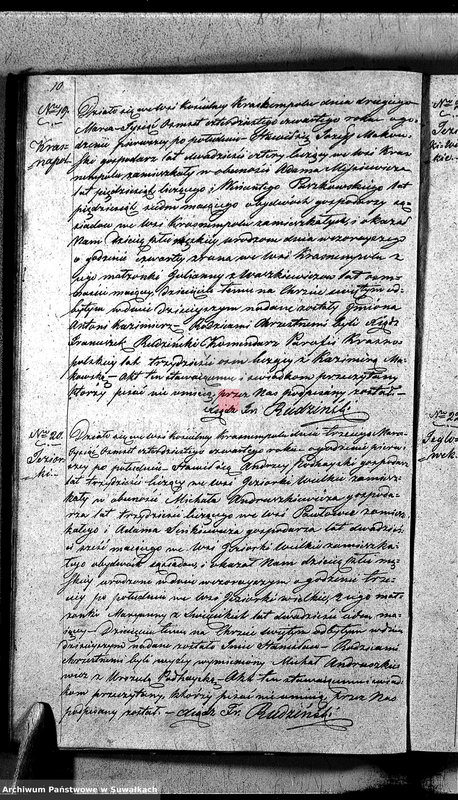 10
No 19.
Kras-
napol.
Działo się we wsi kościelney Krasnempolu dnia drugiego
Marca Tysiąc Osmset czterdziestego czwartego roku o go-
dzinie pierwszey po południu. Stawił się Jozef Makow-
ski gospodarz lat dwadzieścia cztery liczący we wsi Kras-
nempolu zamieszkały w obecności Adama
lat pięćdziesiąt liczącego i Wincentego lat
pięćdziesiąt siedm maiącego obydwóch gospodarzy są-
siadow we wsi Krasnempolu zamieszkałych i okazał
Nam dziecię płci męskiey urodzone dnia wczorayszego
o godzinie czwarty zrana we wsi Krasnempolu z
jego małżonki Julianny z lat ośm-
naście maiący. Dziecięciu temu na Chrzcie świętym od-
bytym w dniu dzisieyszym nadane zostały Imiona
Antoni Kazimierz. Rodzicami Chrzestnemi byli Xiądz
Franciszek Rudzinski Komendarz Parafii Krasno-
polskiey lat trzydzieści ośm liczący z Kazimirą Ma-
kowską. Akt ten stawaiącemu i świadkom przeczytany
którzy pisać nie umieią, przez Nas podpisany został.
Xiądz Fr. Rudzinski
No 20.
Jezior-
ki.
Działo się we wsi kościelney Krasnempolu dnia trzeciego Marca
Tysiąc Osmset czterdziestego czwartego roku o godzinie pierw-
szey po południu. Stawił się Andrzey gospodarz
lat trzydzieści liczący we wsi Jeziorki Wielkie zamiesz-
kały w obecności Michała Andruszkiewicza gospoda-
rza lat trzydzieści liczącego we wsi zamiesz-
kałego i Adama Sienkiewicza gospodarza lat dwadzieś-
cia sześć maiącego we wsi Jeziorki Wielkie zamieszka-
łego obydwóch sąsiadow i okazał Nam dziecię płci mę-
skiey urodzone w dniu wczorayszym o godzinie trze-
ciey po południu we wsi Jeziorki wielkie, z jego mał-
żonki Maryanny z lat dwadzieścia siedm ma-
iący. Dziecięciu temu na Chrzcie świętym odbytym w dniu
dzisieyszym nadane zostało Imie Stanisław. Rodzicami
Chrzestnemi byli wyżey wymieniony Michał Andruszkie-
wicz z Urszulą Akt ten stawaiącemu i świad-
kom przeczytany, którzy pisać nie umieią, przez Nas
podpisany został. Xiądz Fr. Rudzinski
Archiwum Państwowe w Suwałkach